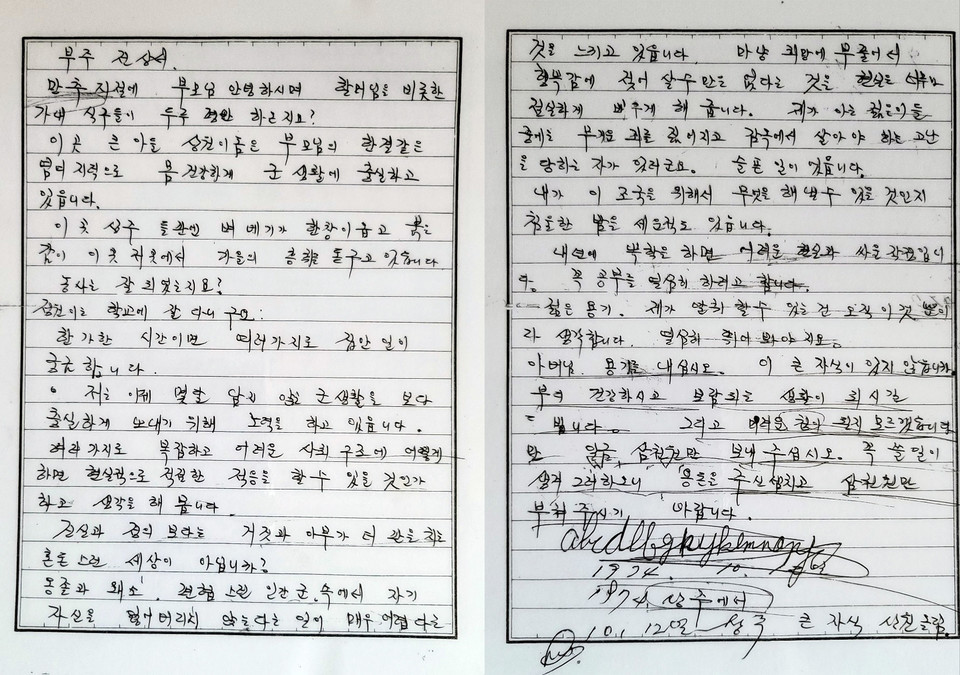 부주 전상서.
만추 지절에 부모님 안녕하시며 할머님을 비롯한
가내 식구들이 두루 편안 하온지요?
이 곳 큰 아들 삼천이놈은 부모님의 한결같은
염려 지덕으로 몸 건강하게 군 생활에 충실하고
있읍니다.
이 곳 상주 들판엔 벼 베기가 한창이옵고 붉은
감이 이 곳 저 곳에서 가을의 흥취를 돋구고 있습니다
농사는 잘 되었는지요?
삼천이는 학교에 잘 다니구요.
한가한 시간이면 여러가지로 집안 일이
궁금 합니다.
저는 이제 몇달 남지 않은 군생활을 보다
충실하게 보내기 위해 노력을 하고 있읍니다.
여러 가지로 복잡하고 어려운 사회 구조에 어떻게
하면 현실적으로 적합한 적응을 할 수 있을 것인가
하고 생각을 해 봅니다.
진실과 정의 보다는 거짓과 아부가 더 판을 치는
혼돈 스런 세상이 아닙니까?
옹졸과 왜소. 편협 스런 인간 군. 속에서 자기
자신을 잃어버리지 않는다는 일이 매우 어렵다는
것을 느끼고 있읍니다. 마냥
행복감에 젖어 살수 만은 없다는 것을 현실은
절실하게 배우게 해 줍니다. 제가 아는 젊은이들
중에는 무거운 죄를 짊어지고 감옥에서 살아야 하는 고난
을 당하는 자가 있더군요. 슬픈 일이 었읍니다.
내가 이 조국을 위해서 무엇을 해 낼수 있을 것인지
침울한 밤을 세운적도 있읍니다.
내년에 복학을 하면 어려운 현실과 싸울 작정입니
다. 꼭 공부를 열심히 하려고 합니다.
젊은 용기. 제가 발휘 할수 있는 건 오직 이것 뿐이
라 생각합니다. 열심히 뛰어 봐야지요.
아버님. 용기를 내십시오. 이 큰 자식이 있지 않습니까
부디 건강하시고 보람되는 생활이 되시길
빕니다. 그리고 어려운 될지 모르겠습니다
만 일금 삼천원만 보내 주십시오. 꼭 쓸 일이
생겨 그러하오니 용돈을 삼천원만
부쳐 주시기 바랍니다.
1974. 10.
1974 상주에서
10. 12일 상주 큰 자식 드림.